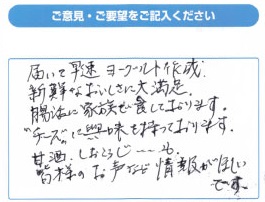 ご意見・ご要望をご記入ください
届いて早速 ヨーグルト作成.
新鮮なおいしさに大満足.
腸活に家族で食しております。
"チーズ"に興味を持っております.
甘酒. しおこうじ……も.
皆様のお声など情報がほしい
です。